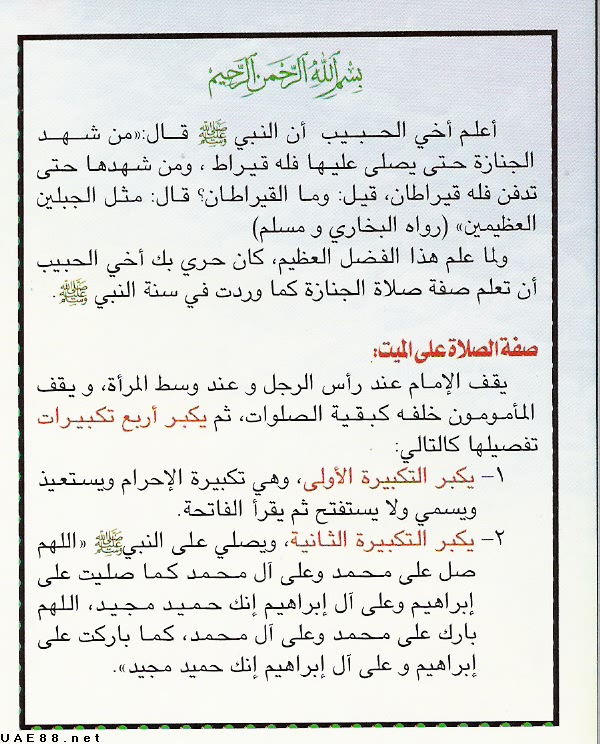 بسم الله الرحمن الرحيم
أعلم أخي الحبيب أن النبي ﷺ قال:«من شهد
الجنازة حتى يصلى عليها فله قيراط ، ومن شهدها حتى
تدفن فله قيراطان، قيل: وما القيراطان؟ قال: مثل الجبلين
العظيمين» (رواه البخاري و مسلم)
ولما علم هذا الفضل العظيم، كان حري بك أخي الحبيب
أن تعلم صفة صلاة الجنازة كما وردت في سنة النبي ﷺ.
صفة الصلاة على الميت:
يقف الإمام عند رأس الرجل و عند وسط المرأة، و يقف
المأمومون خلفه كبقية الصلوات، ثم يكبر أربع تكبيرات
تفصيلها كالتالي:
١- يكبر التكبيرة الأولى، وهي تكبيرة الإحرام ويستعيذ
ويسمي ولا يستفتح ثم يقرأ الفاتحة.
٢- يكبر التكبيرة الثانية، ويصلي على النبي ﷺ «اللهم
صل على محمد وعلى آل محمد كما صليت على
إبراهيم وعلى آل إبراهيم إنك حميد مجيد، اللهم
بارك على محمد وعلى آل محمد، كما باركت على
إبراهيم و على آل إبراهيم إنك حميد مجيد».
UAE88.net